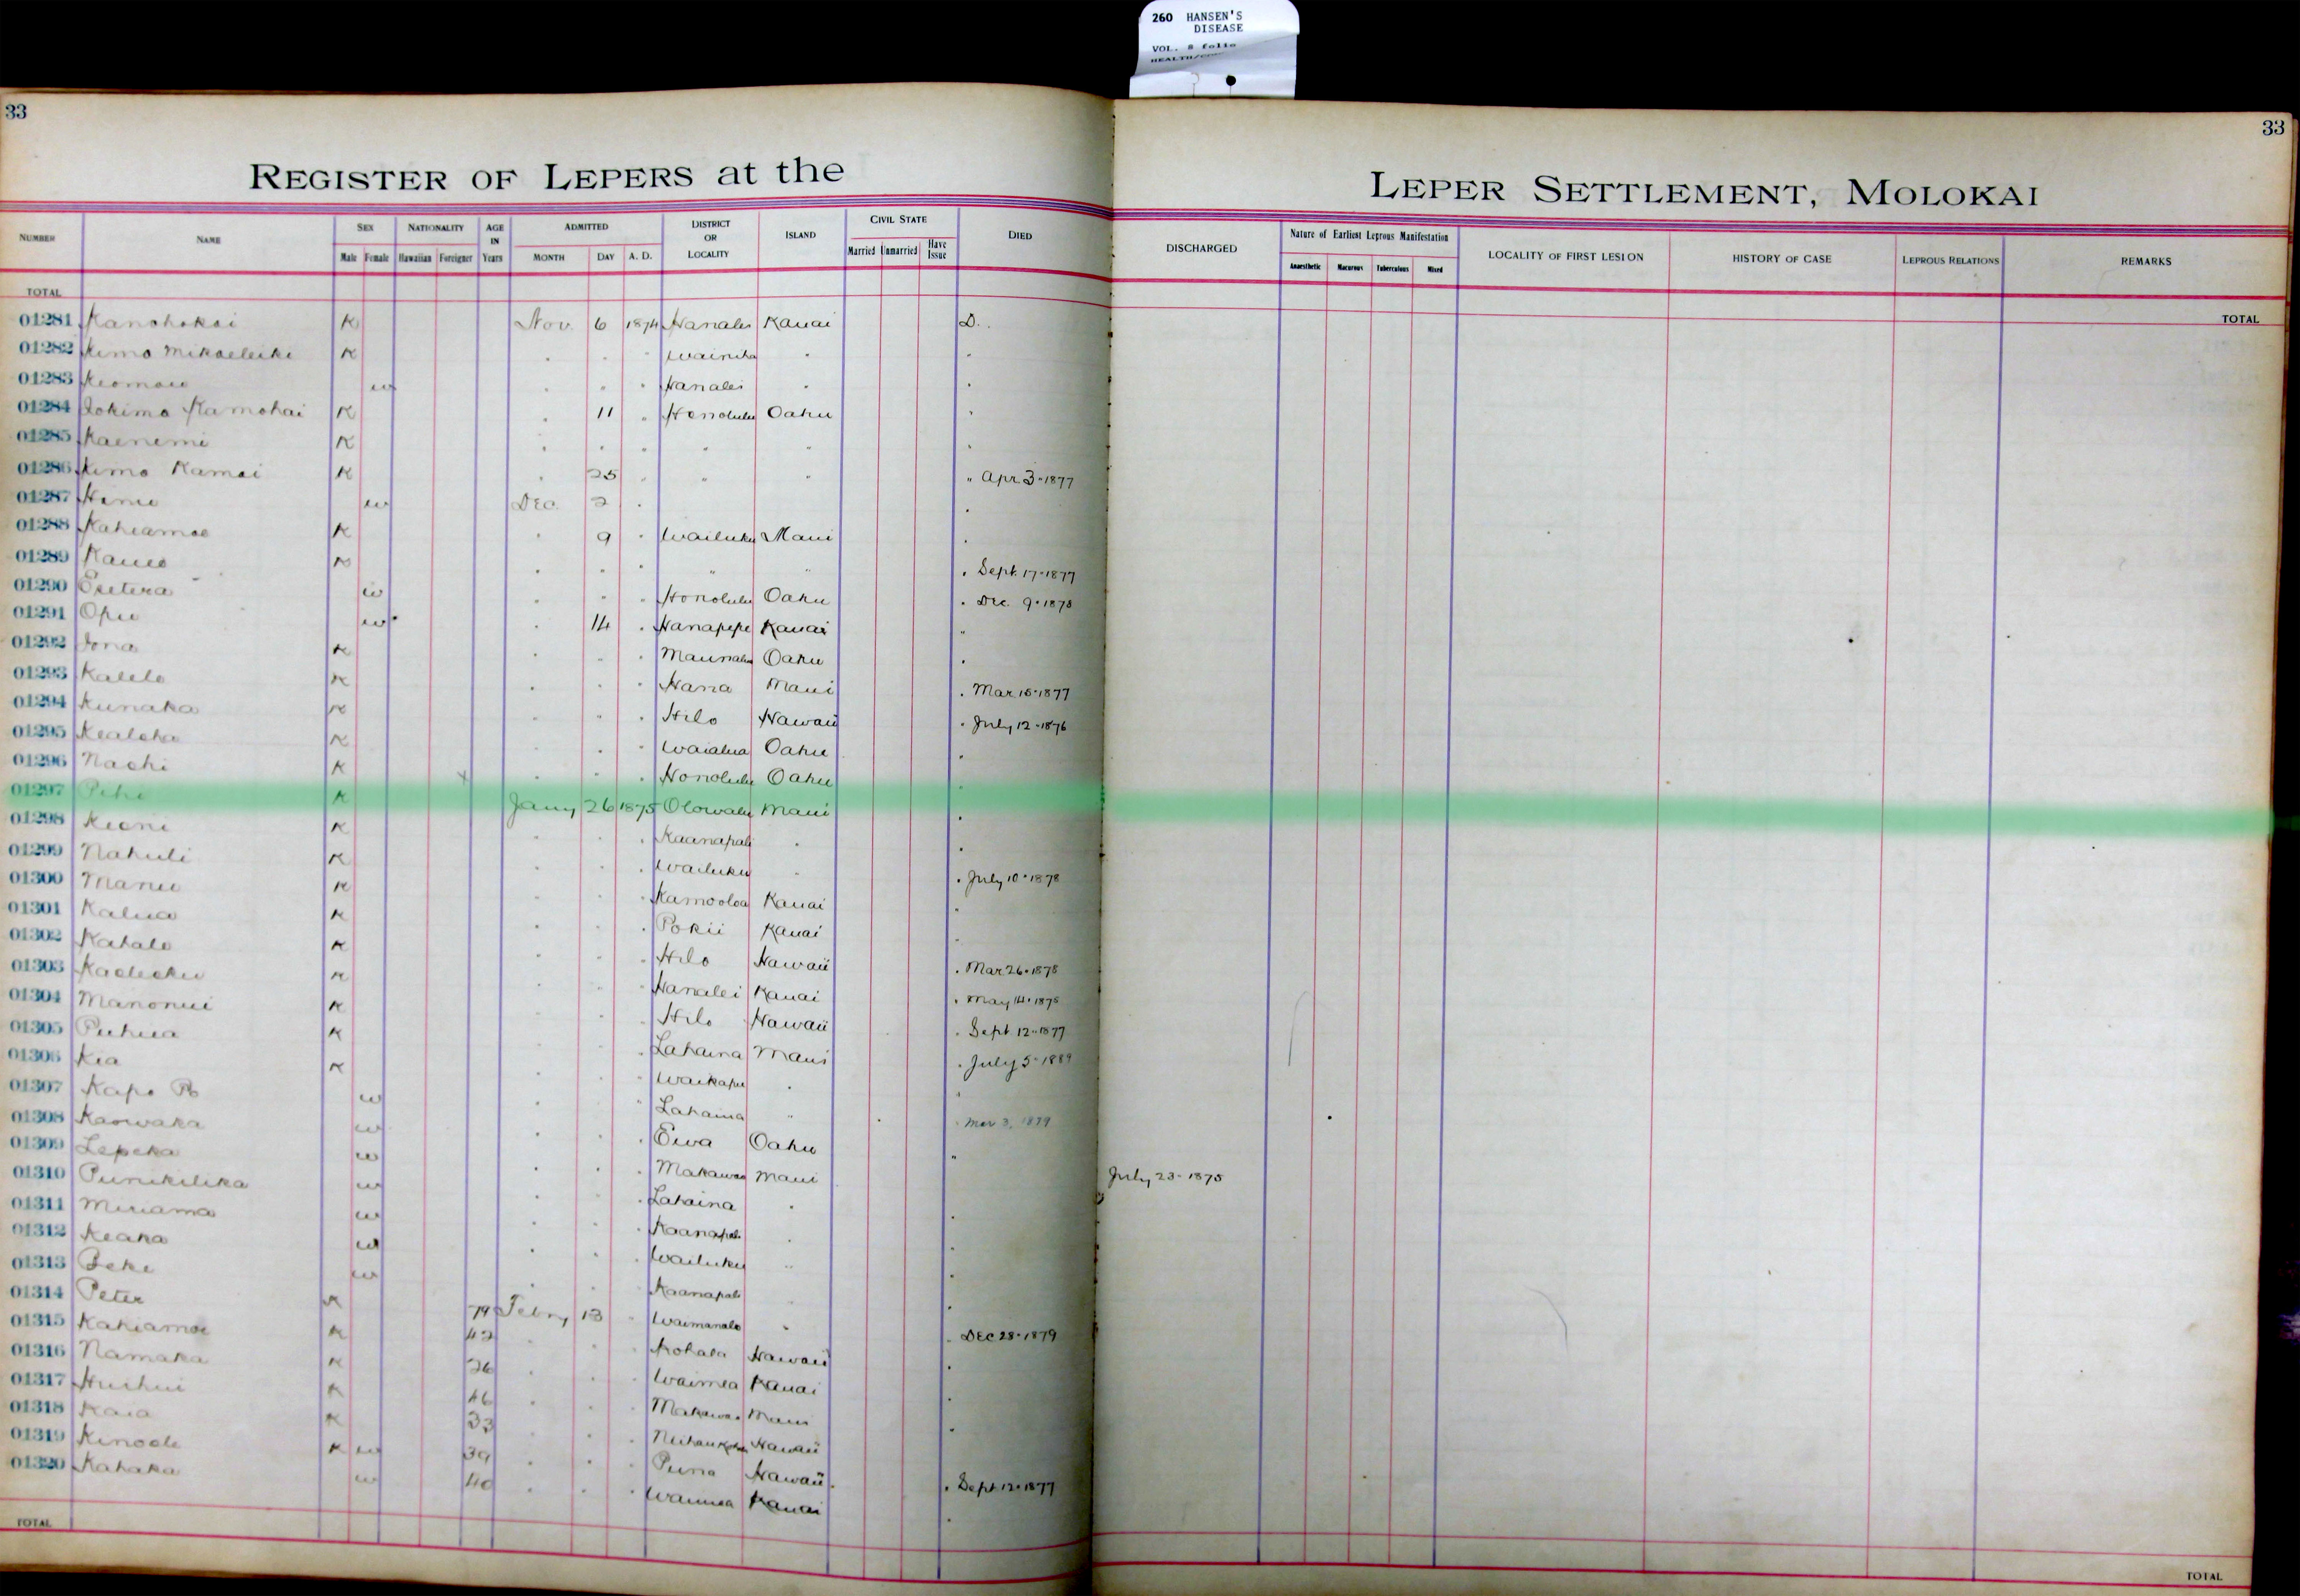 260 HANSEN'S
DISEASE
VOL. 8 folio
33
33
REGISTER OF LEPERS at the LEPER SETTLEMENT, MOLOKAI
NUMBER NAME SEX Male Female NATIONALITY Hawaiian Foreigner AGE IN Years ADMITTED MONTH DAY A. D. DISTRICT OR LOCALITY ISLAND CIVIL STATE Married Unmarried Have Issue DIED DISCHARGED Nature of Earliest Leprous Manifestation Anaesthetic Macurous Tuberculous Mixed LOCALITY OF FIRST LESION HISTORY OF CASE LEPROUS RELATIONS REMARKS
TOTAL TOTAL
01281 Kanohokai K Nov. 6 1874 Hanalei Kauai D.
01282 Kimo Mikaeleiki K " " " Wainiha " "
01283 w " " " Hanalei " "
01284 Iokimo Kamohai K " 11 " Honolulu Oahu "
01285 Kaenemi K " " " " " "
01286 Kimo Kamai K " 25 " " " " Apr 3-1877
01287 w Dec. 2 " "
01288 Kahiamoe K " 9 " Wailuku Maui "
01289 Kaueo K " " " " " " Sept. 17-1877
01290 w " " " Honolulu Oahu " Dec. 9-1878
01291 Opu w " 14 " Hanapepe Kauai "
01292 Iona K " " " Maunalua Oahu "
01293 Kalelo K " " " Hana Maui " Mar 15-1877
01294 Kunaka K " " " Hilo Hawaii " July 12-1876
01295 Kealoha K " " " Waialua Oahu "
01296 Naohi K " " " Honolulu Oahu "
01297 K Jany 26 1875 Olowalu Maui "
01298 Keoni K " " " Kaanapali " "
01299 Nahuli K " " " Wailuku " " July 10-1878
01300 Manu K " " " Kamooloa Kauai "
01301 Kalua K " " " Pokii Kauai "
01302 Kahalo K " " " Hilo Hawaii " Mar 26-1878
01303 K " " " Hanalei Kauai " May 14-1875
01304 Manonui K " " " Hilo Hawaii " Sept 12-1877
01305 Puhua K " " " Lahaina Maui " July 5-1889
01306 Kia K " " " Waikapu " "
01307 Kapo w " " " Lahaina " " Mar 3, 1879
01308 Kaowaka w " " " Ewa Oahu "
01309 Lepeka w " " " Makawao Maui July 23-1875
01310 Punikilika w " " " Lahaina " "
01311 Miriama w " " " Kaanapali " "
01312 Keaka w " " " Wailuku " "
01313 Beke w " " " Kaanapali " "
01314 Peter K 79 Febry 13 " Waimanalo " " Dec 28-1879
01315 Kahiamoe K 42 " " " Kohala Hawaii "
01316 Namaka K 26 " " " Waimea Kauai "
01317 Huihui K 46 " " " Makawao Maui "
01318 Kaia K 33 " " " Hawaii
01319 Kinoole K w 39 " " " Puna Hawaii " Sept 12-1877
01320 Kahaka w 40 " " " Waimea Kauai "
TOTAL TOTAL